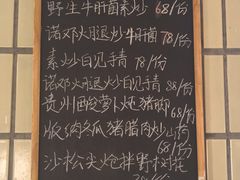 野生牛肝菌素炒 68/份
诺邓火腿炒牛肝菌 78/份
素炒白见手青 78/份
诺邓火腿炒白见手青 88/份
贵州酸萝卜炒猪脚 68/份
版纳冬瓜猪腊肉炒
68/份
沙松尖炝拌野树花